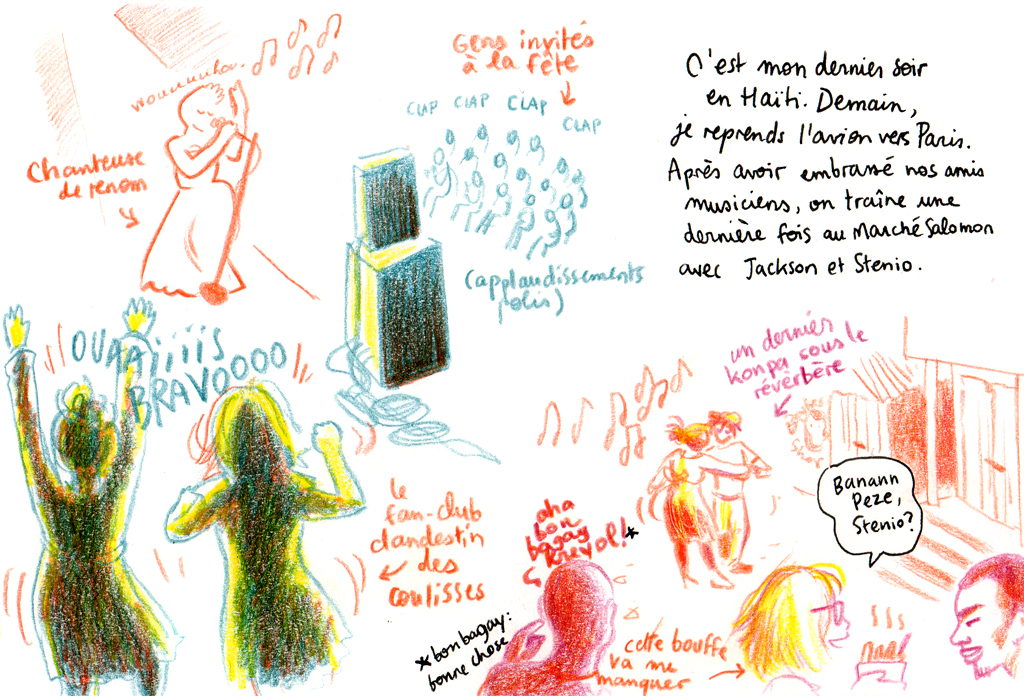 Wouuuuhou..
Chanteuse
de renom
Gens invités
à la fête
CLAP CLAP CLAP
CLAP
(applaudissements
polis)
C'est mon dernier soir
en Haïti. Demain,
je reprends l'avion vers Paris.
Après avoir embrassé nos amis
musiciens, on traîne une
dernière fois au Marché Salomon
avec Jackson et Stenio.
OUAAiiiiS
BRAVOOOO
le
fan-club
clandestin
des
coulisses
un dernier
konpa sous le
réverbère
aha
bon
bagay
*
*bon bagay:
bonne chose
Banann
Peze,
Stenio?
cette bouffe
va me
manquer